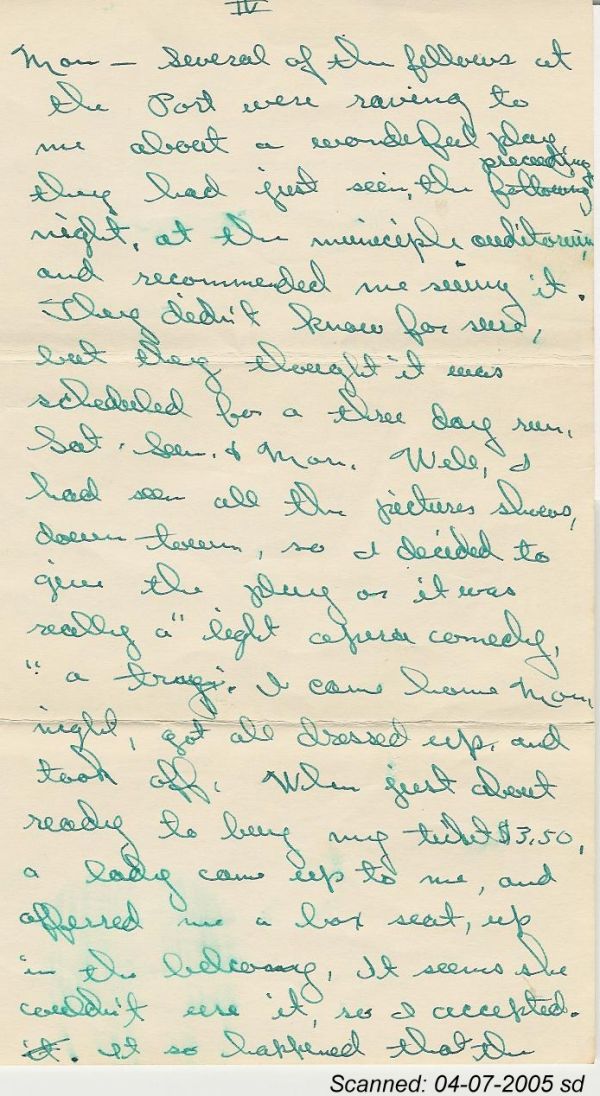 IV
Mon — Several of the fellows at
the Port were raving to
me about a wonderful play
preceeding
they had just seen, the following
night, at the municiple auditorium,
and recommended me seeing it.
They didn't know for sure,
but they thought it was
scheduled for a three day run,
Sat. Sun. & Mon. Well, I
had seen all the pictures shows,
down town, so I decided to
give the play or it was
really a "light opera comedy,
" a trag. I came home Mon.
night, got all dressed up, and
took off. When just about
ready to buy my ticket $3.50,
a lady came up to me, and
offerred me a box seat, up
in the balcony. It seems she
couldn't use it, so I accepted.
it. It so happened that the
Scanned: 04-07-2005 sd